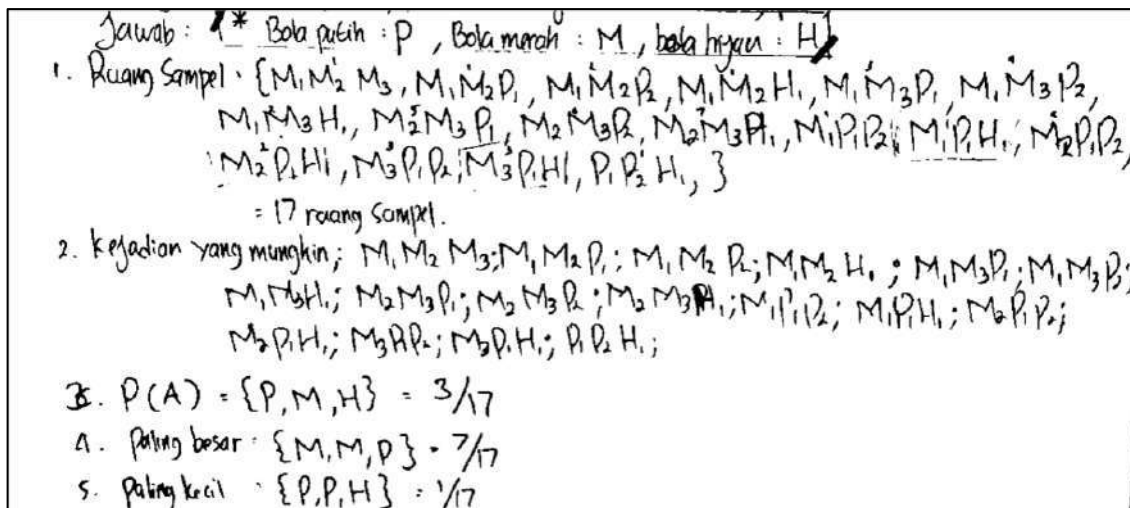 Jawab : * Bola putih : P , Bola merah : M , bola hijau : H
1. Ruang Sampel : {M₁M₂M₃, M₁M₂P₁, M₁M₂P₂, M₁M₂H₁, M₁M₃P₁, M₁M₃P₂,
M₁M₃H₁, M₂M₃P₁, M₂M₃P₂, M₂M₃H₁, M₁P₁P₂, M₁P₁H₁, M₂P₁P₂,
M₂P₁H₁, M₃P₁P₂, M₃P₁H₁, P₁P₂H₁, }
= 17 ruang sampel.
2. kejadian yang mungkin; M₁M₂M₃; M₁M₂P₁; M₁M₂P₂; M₁M₂H₁; M₁M₃P₁; M₁M₃P₂;
M₁M₃H₁; M₂M₃P₁; M₂M₃P₂; M₂M₃H₁; M₁P₁P₂; M₁P₁H₁; M₂P₁P₂;
M₂P₁H₁; M₃P₁P₂; M₃P₁H₁; P₁P₂H₁;
3. P(A) = {P, M, H} = 3/17
4. Paling besar = {M, M, P} = 7/17
5. paling kecil = {P, P, H} = 1/17